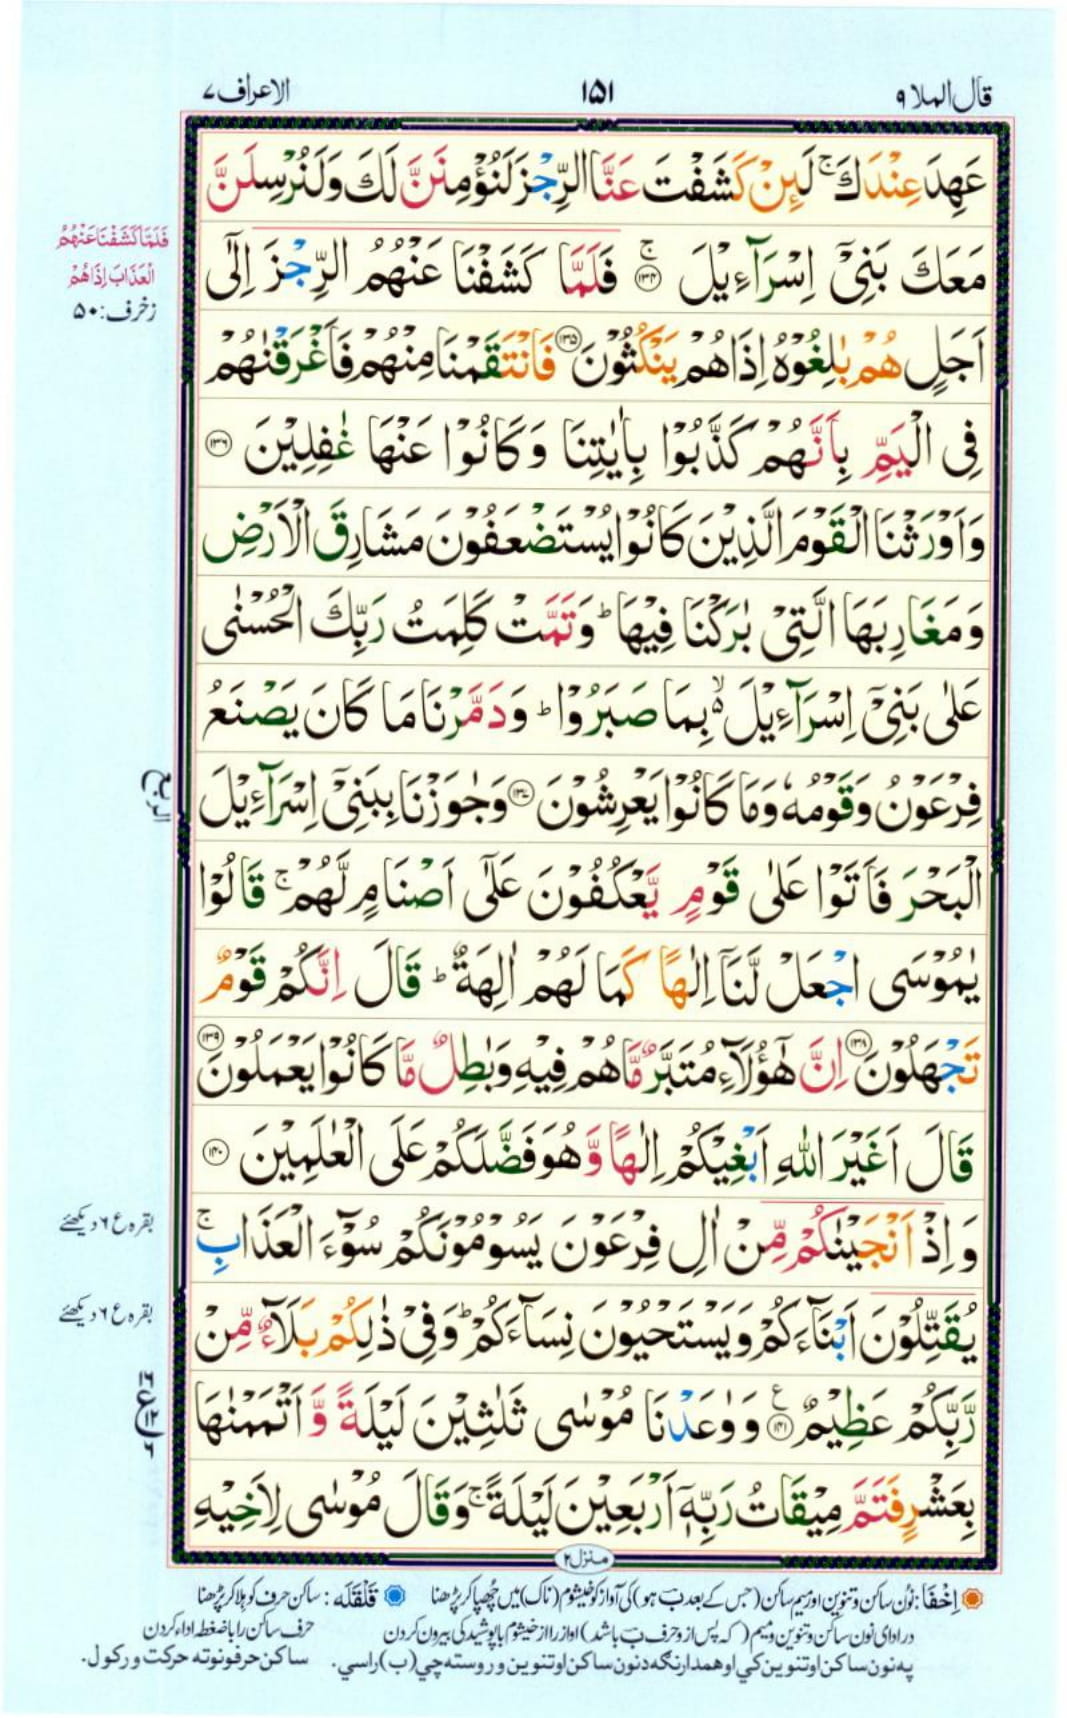 قال الملا ٩
١٥١
الاعراف ٧
عَهِدَ عِنْدَكَ ۚ لَئِنْ كَشَفْتَ عَنَّا الرِّجْزَ لَنُؤْمِنَنَّ لَكَ وَلَنُرْسِلَنَّ
مَعَكَ بَنِیْۤ اِسْرَآءِیْلَ ۚ ﴿۱۳۴﴾ فَلَمَّا كَشَفْنَا عَنْهُمُ الرِّجْزَ اِلٰۤی
اَجَلٍ هُمْ بٰلِغُوْهُ اِذَا هُمْ یَنْكُثُوْنَ ﴿۱۳۵﴾ فَانْتَقَمْنَا مِنْهُمْ فَاَغْرَقْنٰهُمْ
فِی الْیَمِّ بِاَنَّهُمْ كَذَّبُوْا بِاٰیٰتِنَا وَكَانُوْا عَنْهَا غٰفِلِیْنَ ﴿۱۳۶﴾
وَاَوْرَثْنَا الْقَوْمَ الَّذِیْنَ كَانُوْا یُسْتَضْعَفُوْنَ مَشَارِقَ الْاَرْضِ
وَمَغَارِبَهَا الَّتِیْ بٰرَكْنَا فِیْهَا ؕ وَتَمَّتْ كَلِمَتُ رَبِّكَ الْحُسْنٰی
عَلٰی بَنِیْۤ اِسْرَآءِیْلَ ۙ۬ بِمَا صَبَرُوْا ؕ وَدَمَّرْنَا مَا كَانَ یَصْنَعُ
فِرْعَوْنُ وَقَوْمُهٗ وَمَا كَانُوْا یَعْرِشُوْنَ ﴿۱۳۷﴾ وَجٰوَزْنَا بِبَنِیْۤ اِسْرَآءِیْلَ
الْبَحْرَ فَاَتَوْا عَلٰی قَوْمٍ یَّعْكُفُوْنَ عَلٰۤی اَصْنَامٍ لَّهُمْ ۚ قَالُوْا
یٰمُوْسَی اجْعَلْ لَّنَاۤ اِلٰهًا كَمَا لَهُمْ اٰلِهَةٌ ؕ قَالَ اِنَّكُمْ قَوْمٌ
تَجْهَلُوْنَ ﴿۱۳۸﴾ اِنَّ هٰۤؤُلَآءِ مُتَبَّرٌ مَّا هُمْ فِیْهِ وَبٰطِلٌ مَّا كَانُوْا یَعْمَلُوْنَ ﴿۱۳۹﴾
قَالَ اَغَیْرَ اللّٰهِ اَبْغِیْكُمْ اِلٰهًا وَّهُوَ فَضَّلَكُمْ عَلَی الْعٰلَمِیْنَ ﴿۱۴۰﴾
وَاِذْ اَنْجَیْنٰكُمْ مِّنْ اٰلِ فِرْعَوْنَ یَسُوْمُوْنَكُمْ سُوْٓءَ الْعَذَابِ ۚ
یُقَتِّلُوْنَ اَبْنَآءَكُمْ وَیَسْتَحْیُوْنَ نِسَآءَكُمْ ؕ وَفِیْ ذٰلِكُمْ بَلَآءٌ مِّنْ
رَّبِّكُمْ عَظِیْمٌ ﴿۱۴۱﴾ ع وَوٰعَدْنَا مُوْسٰی ثَلٰثِیْنَ لَیْلَةً وَّاَتْمَمْنٰهَا
بِعَشْرٍ فَتَمَّ مِیْقَاتُ رَبِّهٖۤ اَرْبَعِیْنَ لَیْلَةً ۚ وَقَالَ مُوْسٰی لِاَخِیْهِ
منزل ٢
فَلَمَّا كَشَفْنَا عَنْهُمُ
الْعَذَابَ اِذَا هُمْ
زخرف: ۵۰
الربع
بقرہ ع ۶ دیکھئے
بقرہ ع ۶ دیکھئے
۱۶
ع
۱۲
۶
اِخْفَا: نُون ساکن و تنوین اور میم ساکن (جس کے بعد بَ ہو) کی آواز کو خیشوم (ناک) میں چُھپا کر پڑھنا قَلْقَلَه: ساکن حرف کو ہلا کر پڑھنا
در ادای نون ساکن و تنوین و میم (که پس از و حرف بَ باشد) اواز را از خیشوم با پوشیدگی بیرون کردن حرف ساکن را با ضغط ادا کردن
په نون ساکن او تنوین کي او همدارنګه د نون ساکن او تنوین و روسته چي (ب) راسي. ساکن حرفو نو ته حرکت ور کول.